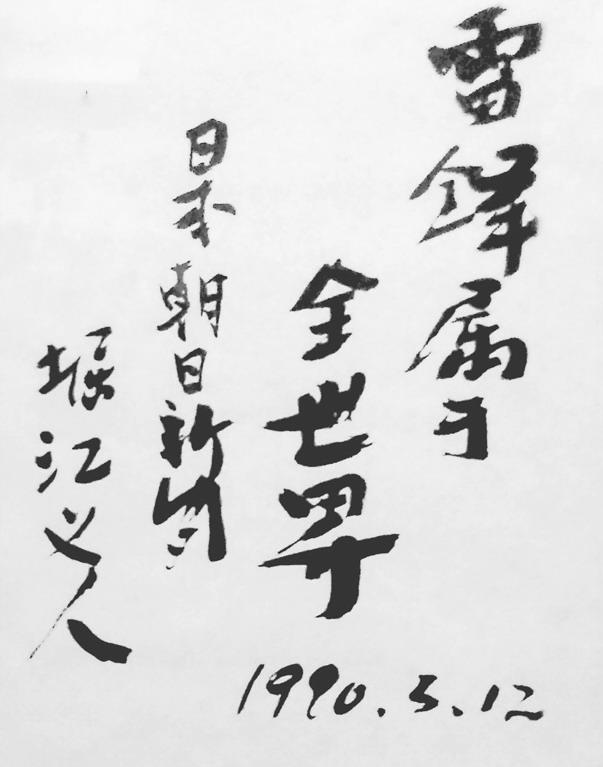 雷锋属于
全世界
日本朝日新闻
堀江义人
1990.3.12